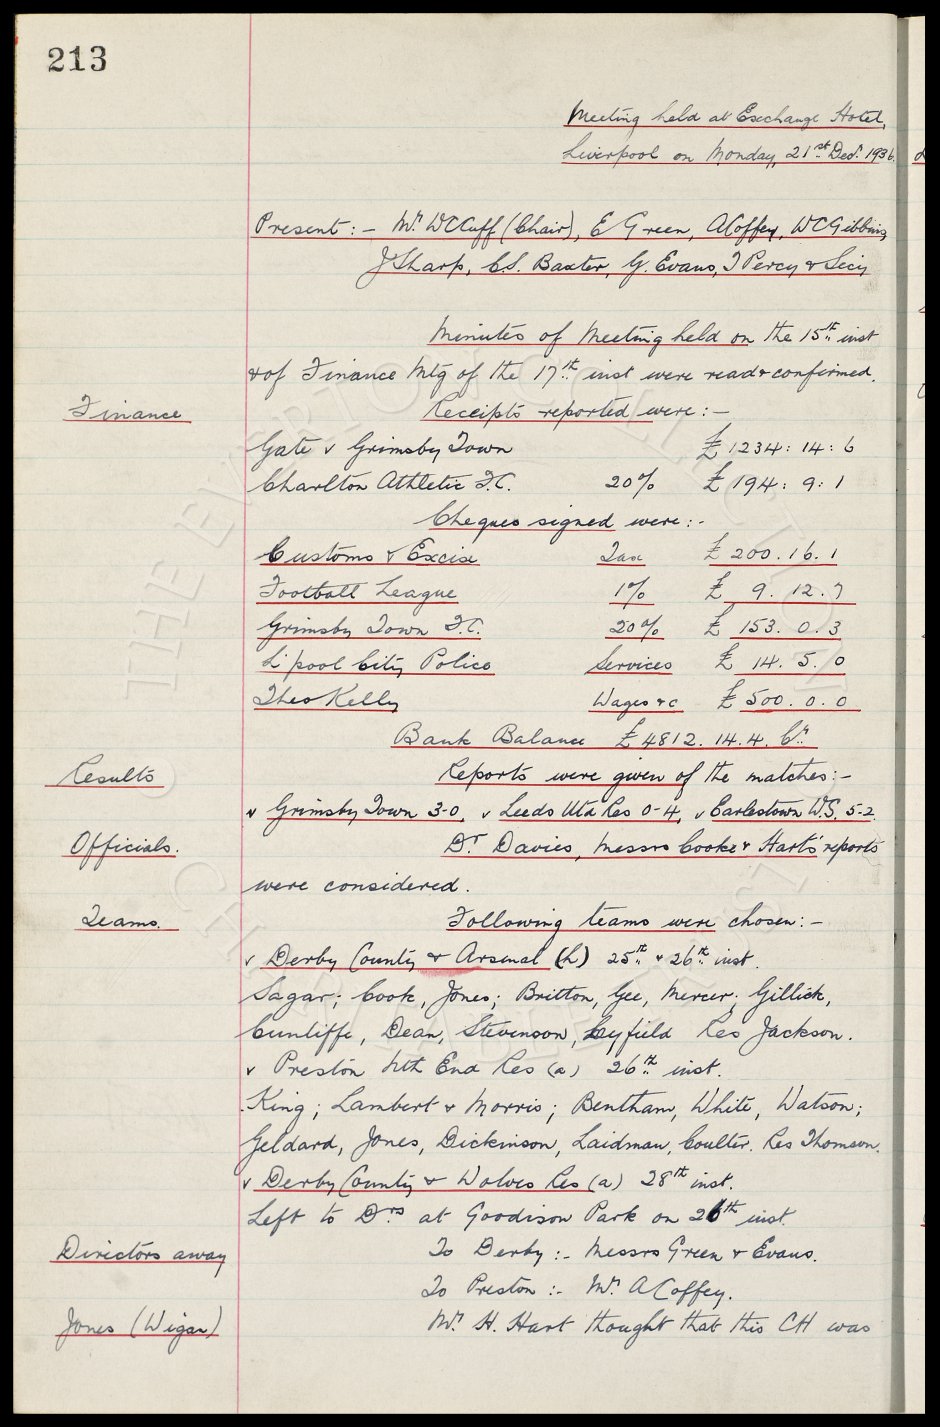 213
Meeting held at Exchange Hotel,
Liverpool on Monday, 21st Decr. 1936.
Present:- Mr. WCCuff (Chair), E Green, ACoffey, WCGibbins,
J Sharp, C.S. Baxter, G. Evans, T Percy & Secy
Minutes of Meeting held on the 15th inst
& of Finance Mtg of the 17th inst were read & confirmed.
Finance Receipts reported were:-
Gate v Grimsby Town £1234: 14: 6
Charlton Athletic F.C. 20% £ 194: 9: 1
Cheques signed were:-
Customs & Excise Tax £ 200. 16. 1
Football League 1% £ 9. 12. 7
Grimsby Town F.C. 20% £ 153. 0. 3
L'pool City Police Services £ 14. 5. 0
Theo Kelly Wages &c £ 500. 0. 0
Bank Balance £4812. 14. 4. Cr.
Results Reports were given of the matches:-
v Grimsby Town 3-0, v Leeds Utd Res 0-4, v Earlestown W.S. 5-2.
Officials. Dr Davies, Messrs Cooke & Hart's reports
were considered.
Teams. Following teams were chosen:-
v Derby County & Arsenal (h) 25th & 26th inst.
Sagar; Cook, Jones; Britton, Gee, Mercer; Gillick,
Cunliffe, Dean, Stevenson, Leyfield Res Jackson.
v Preston Nth End Res (a) 26th inst.
King; Lambert & Morris; Bentham, White, Watson;
Geldard, Jones, Dickinson, Laidman, Coulter. Res Thomson.
v Derby County & Wolves Res (a) 28th inst.
Left to Drs at Goodison Park on 26th inst.
Directors away To Derby:- Messrs Green & Evans.
To Preston:- Mr. ACoffey.
Jones (Wigan) Mr. H. Hart thought that this CH was